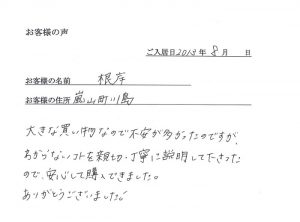 お客様の声
ご入居日2013年8月　日
お客様の名前　根岸
お客様の住所　嵐山町川島
大きな買い物なので不安が多かったのですが、
わからないコトを親切・丁寧に説明して下さった
ので、安心して購入できました。
ありがとうございました!